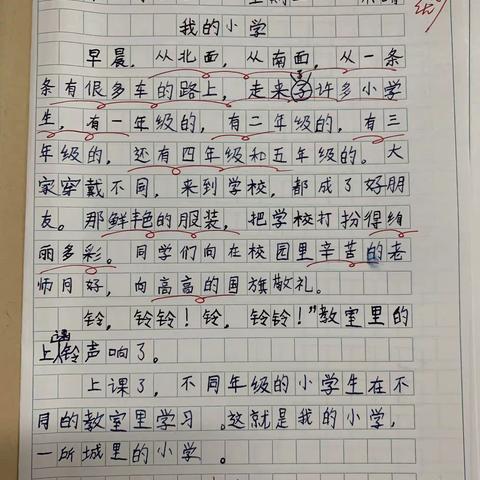 我的小学
早晨，从北面，从南面，从一条
条有很多车的路上，走来了许多小学
生，有一年级的，有二年级的，有三
年级的，还有四年级和五年级的。大
家穿戴不同，来到学校，都成了好朋
友。那鲜艳的服装，把学校打扮得绚
丽多彩。同学们向在校园里辛苦的老
师问好，向高高的国旗敬礼。
铃，铃铃！铃，铃铃！”教室里的
上课铃声响了。
上课了，不同年级的小学生在不
同的教室里学习。这就是我的小学，
一所城里的小学。